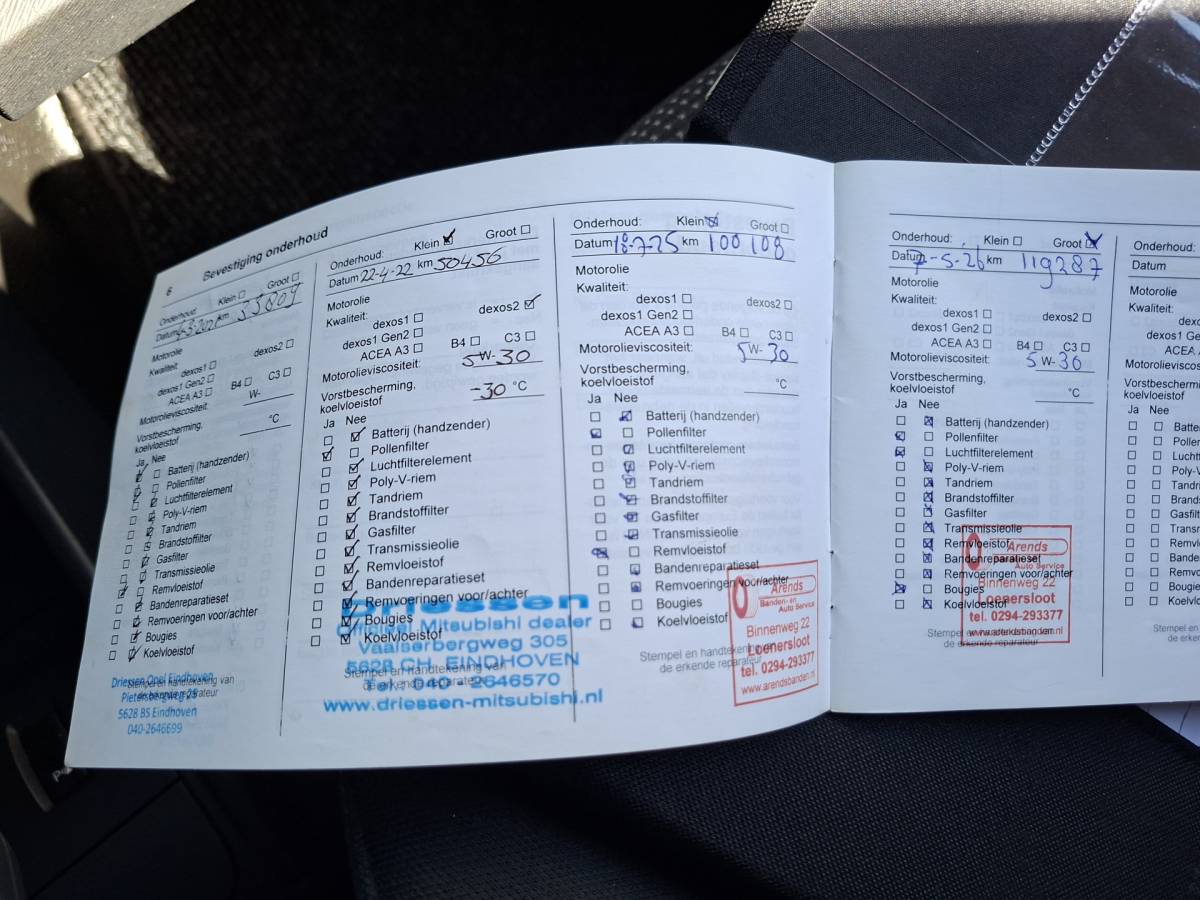 6 Bevestiging onderhoud
Onderhoud: Klein Groot
Datum km 33809
Motorolie
Kwaliteit:
dexos1 dexos2
dexos1 Gen2
ACEA A3 B4 C3
Motorolieviscositeit: W-
Vorstbescherming,
koelvloeistof °C
Ja Nee
Batterij (handzender)
Pollenfilter
Luchtfilterelement
Poly-V-riem
Tandriem
Brandstoffilter
Gasfilter
Transmissieolie
Remvloeistof
Bandenreparatieset
Remvoeringen voor/achter
Bougies
Koelvloeistof
Stempel en handtekening van
de erkende reparateur
Driessen Opel Eindhoven
Pietersbergweg 25
5628 BS Eindhoven
040-2646699
Onderhoud: Klein Groot
Datum 22-4-22 km 50456
Motorolie
Kwaliteit:
dexos1 dexos2
dexos1 Gen2
ACEA A3 B4 C3
Motorolieviscositeit: 5W-30
Vorstbescherming,
koelvloeistof -30 °C
Ja Nee
Batterij (handzender)
Pollenfilter
Luchtfilterelement
Poly-V-riem
Tandriem
Brandstoffilter
Gasfilter
Transmissieolie
Remvloeistof
Bandenreparatieset
Remvoeringen voor/achter
Bougies
Koelvloeistof
Stempel en handtekening van
de erkende reparateur
Driessen
Officieel Mitsubishi dealer
Vaalserbergweg 305
5628 CH EINDHOVEN
Tel. 040 - 2646570
www.driessen-mitsubishi.nl
Onderhoud: Klein Groot
Datum 18-7-25 km 100108
Motorolie
Kwaliteit:
dexos1 dexos2
dexos1 Gen2
ACEA A3 B4 C3
Motorolieviscositeit: 5W-30
Vorstbescherming,
koelvloeistof °C
Ja Nee
Batterij (handzender)
Pollenfilter
Luchtfilterelement
Poly-V-riem
Tandriem
Brandstoffilter
Gasfilter
Transmissieolie
Remvloeistof
Bandenreparatieset
Remvoeringen voor/achter
Bougies
Koelvloeistof
Stempel en handtekening
de erkende reparateur
Arends
Banden- en
Auto Service
Binnenweg 22
Loenersloot
tel. 0294-293377
www.arendsbanden.nl
Onderhoud: Klein Groot
Datum 7-5-26 km 119287
Motorolie
Kwaliteit:
dexos1 dexos2
dexos1 Gen2
ACEA A3 B4 C3
Motorolieviscositeit: 5W-30
Vorstbescherming,
koelvloeistof °C
Ja Nee
Batterij (handzender)
Pollenfilter
Luchtfilterelement
Poly-V-riem
Tandriem
Brandstoffilter
Gasfilter
Transmissieolie
Remvloeistof
Bandenreparatieset
Remvoeringen voor/achter
Bougies
Koelvloeistof
Stempel en handtekening van
de erkende reparateur
Arends
Auto Service
Binnenweg 22
Loenersloot
tel. 0294-293377
www.arendsbanden.nl
Onderhoud:
Datum
Motorolie
Kwaliteit:
dexos1
dexos1 Ge
ACEA A
Motorolieviscosi
Vorstbescherming
koelvloeistof
Ja Nee
Batte
Pollen
Lucht
Poly-V
Tandri
Brands
Gasfilt
Transm
Remvl
Bande
Remvo
Bougie
Koelvl
Stempel
de